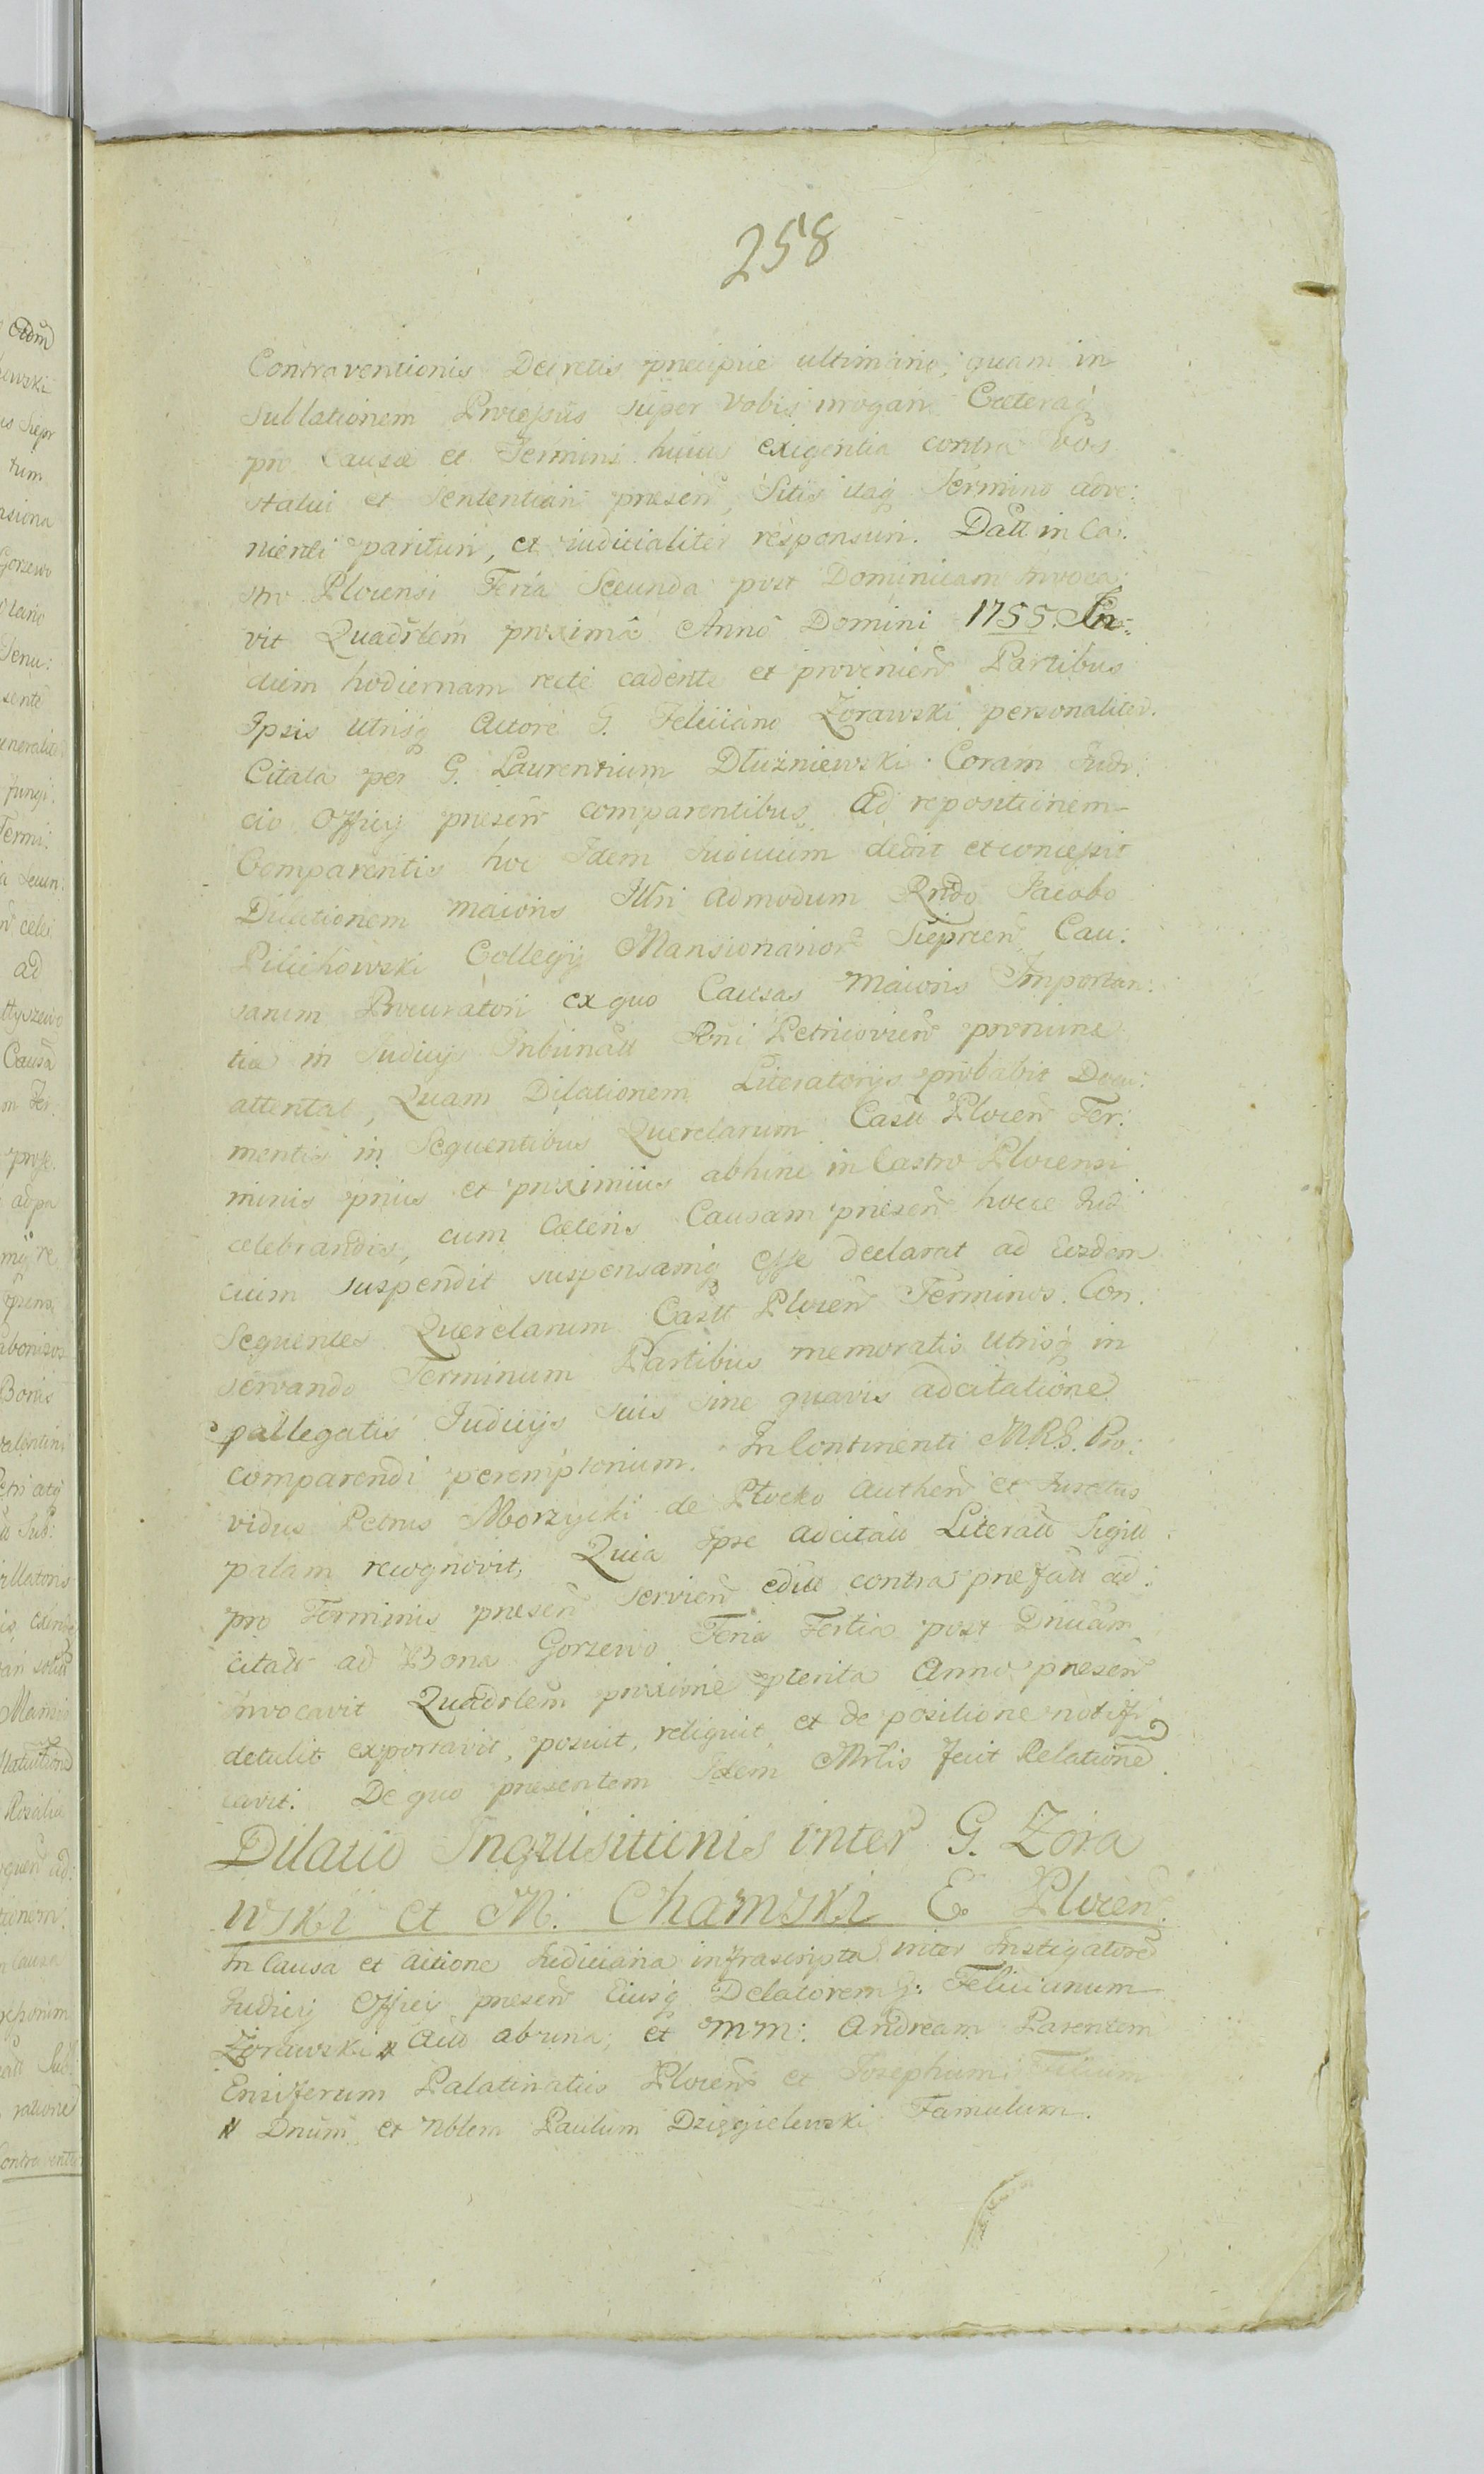 258
Contraventionis Decretis precipue ultimario, quam in
sublationem Processus super Vobis irrogari Cæteraq
pro Causæ et Termini huius exigentia contra vos
statui et sententiari presen, Sitis itaq Termino adve:
nienti parituri, et iudicialiter responsuri. Datt in Ca:
stro Plocensi Feria Secunda post Dominicam Invoca:
vit Quadrlem proxima Anno Domini 1755. In:
diem hodiernam recte cadente et provenien Partibus
Ipsis utrisq Actore G. Feliciano Zorawski personaliter.
Citata per G. Laurentium Dłuzniewski Coram Judi:
cio Officij presen comparentibus ad repositionem
Comparentis hoc Idem Judicium dedit et concessit
Dilationem maioris Illri admodum Rndo Jacobo
Pilichowski Collegij Mansionarior Sieprcen Cau:
sarum Procuratori ex quo Causas maioris Importan:
tiæ in Judicijs Tribunall Rni Petricovien pronunc
attentat, Quam Dilationem Literatorijs probabit Docu:
mentis in Sequentibus Querelarum Castt Plocen Ter:
minis prius et proximius abhinc in Castro Plocensi
celebrandis, cum Cæteris Causam presen hocce Judi
cium suspendit suspensamq esse declarat ad Eosdem
Sequentes Querelarum Castt Plocen Terminos. Con:
servando Terminum Partibus memoratis utrisq in
pallegatis Judicijs suis sine quavis adcitatione
comparendi peremptorium. In Continenti M.R.S. Pro:
vidus Petrus Morzycki de Płocko authen et Juratus
palam recognovit, Quia Ipse adcitatt Literatt Sigill
pro Terminis presen Servien editt contra prefatt ad:
citatt ad Bona Gorzewo Feria Tertia post Dnicam
Invocavit Quadrlem proxime pterita Anno presen
detulit exportavit, posuit, reliquit et de positione notifi
cavit. De quo presentem Idem Mrlis fecit Relatione.
Dilatio Inquisitionis inter G. Zora
wski et M. Chamski E. Plocen.
In Causa et actione Judiciaria infrascripta inter Instigatore
Judicij Officij presen Eiusq Delatorem G: Felicianum
Zorawski Act ab una, et MM: Andream Parentem
Ensiferum Palatinatus Plocen et Josephum Filium
# Dnum et Nblem Paulum Dzięgielewski Famulum.